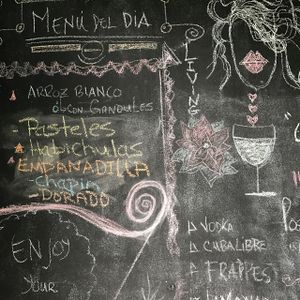 Menú del Dia
Arroz Blanco
ó con Gandules
- Pasteles
Habichulas
Empanadilla
- Chapin
- Dorado
Enjoy
Your
Living
Vodka
Cuba Libre
Frappes